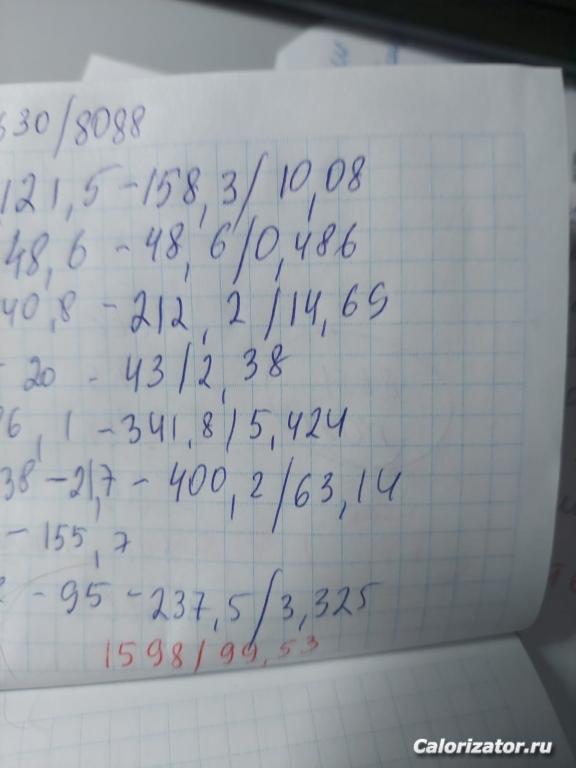 630/8088
121,5-158,3/10,08
48,6 - 48,6/0,486
40,8 - 212,2/14,69
- 20 - 43/2,38
96,1 - 341,8/5,424
38 - 21,7 - 400,2/63,14
- 155,7
- 95 - 237,5/3,325
1598/99,53
Calorizator.ru